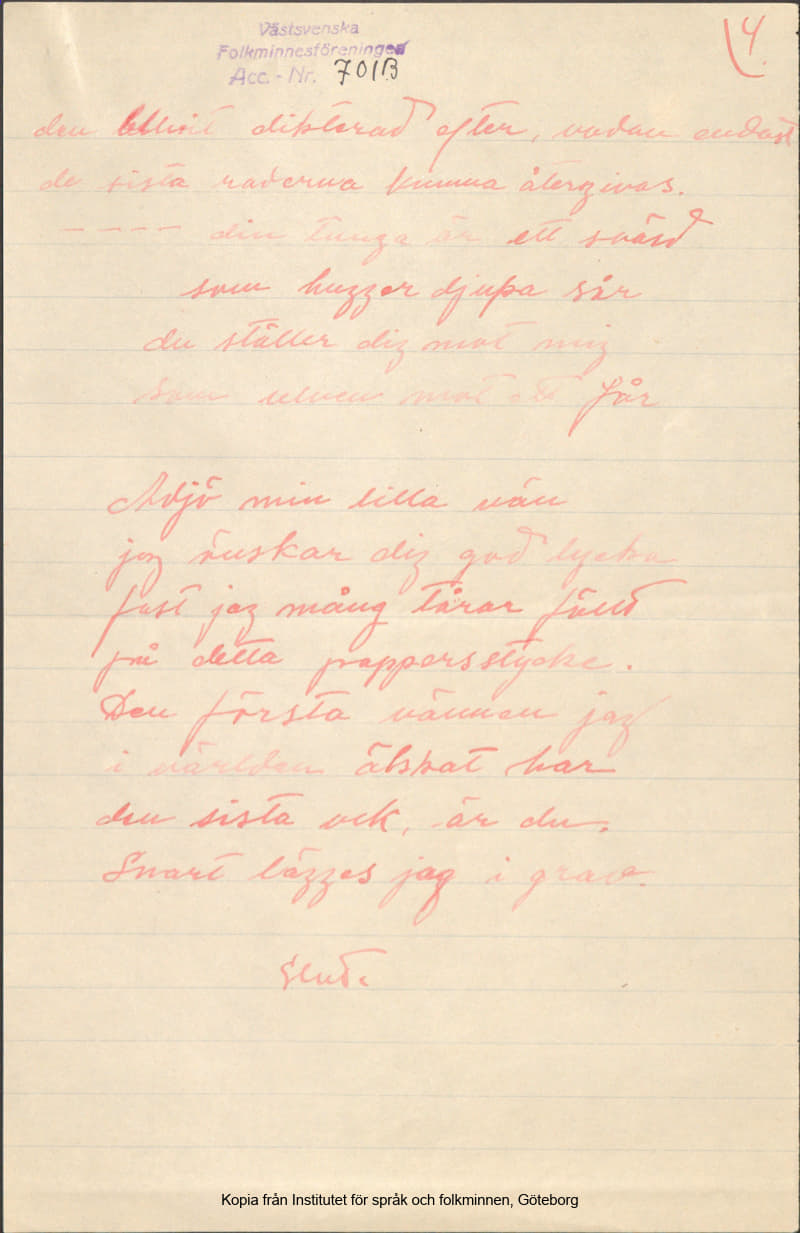 Västsvenska
Folkminnesföreningen
Acc.-Nr. 701B
4.
den blivit dikterad efter, vadan endast
de sista raderna kunna återgivas.
---- din tunga är ett svärd
som hugger djupa sår
du ställer dig mot mig
som ulven mot ett får
Adjö min lilla vän
jag önskar dig god lycka
fast jag mång tårar fällt
på detta pappersstycke.
Den första vännen jag
i världen älskat har
den sista ock, är du.
Snart lägges jag i grav.
Slut.
Kopia från Institutet för språk och folkminnen, Göteborg